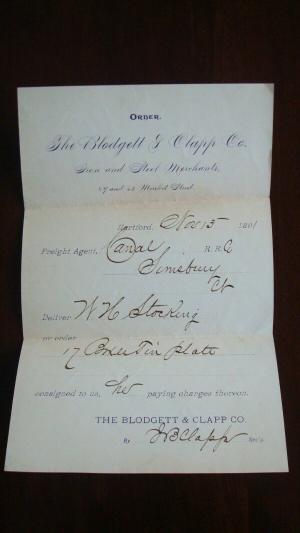 ORDER.
The Blodgett & Clapp Co.
Iron and Steel Merchants,
and Market Street.
Hartford, Nov 15
Freight Agent, Canal R. R. Co
Simsbury
Ct
Deliver W H Stocking
or order
17 Boxes Tin plate
consigned to us, he paying charges thereon.
THE BLODGETT & CLAPP CO.
By J B Clapp Sec'y.